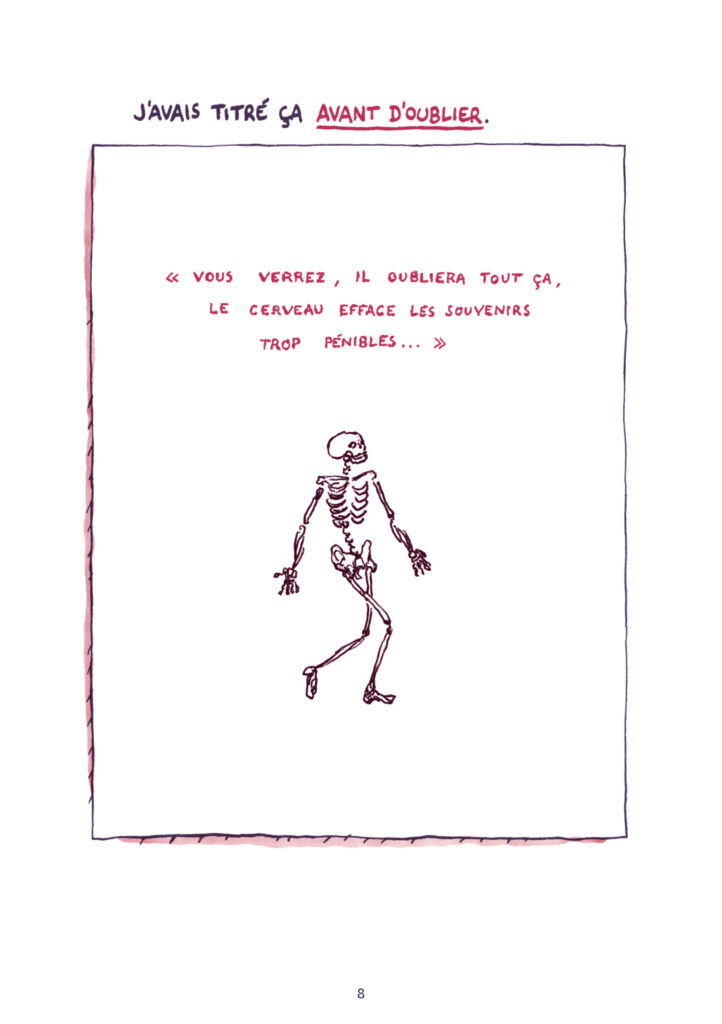 J'AVAIS TITRÉ ÇA AVANT D'OUBLIER.
« VOUS VERREZ, IL OUBLIERA TOUT ÇA,
LE CERVEAU EFFACE LES SOUVENIRS
TROP PÉNIBLES... »
8